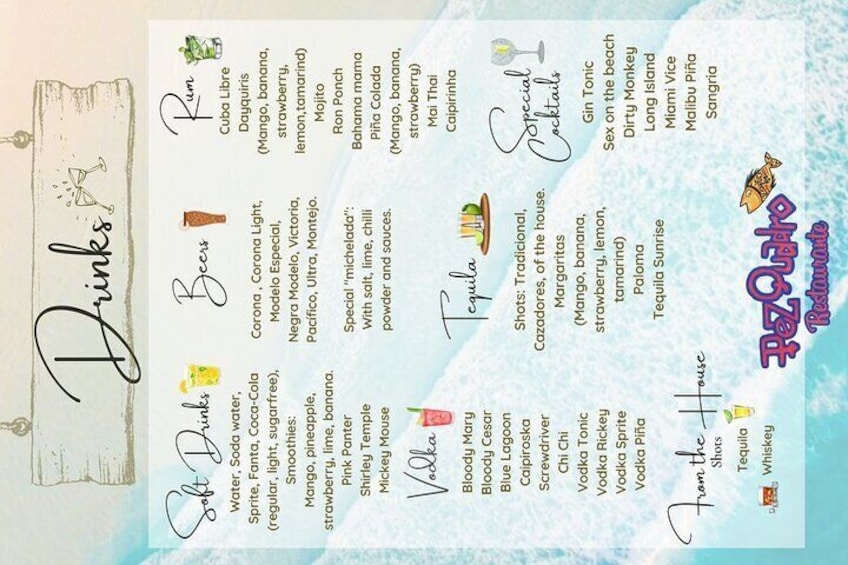 Drinks
Soft Drinks
Water, Soda water,
Sprite, Fanta, Coca-Cola
(regular, light, sugarfree),
Smoothies:
Mango, pineapple,
strawberry, lime, banana.
Pink Panter
Shirley Temple
Mickey Mouse
Vodka
Bloody Mary
Bloody Cesar
Blue Lagoon
Caipiroska
Screwdriver
Chi Chi
Vodka Tonic
Vodka Rickey
Vodka Sprite
Vodka Piña
From the House
Shots
Tequila
Whiskey
Beers
Corona, Corona Light,
Modelo Especial,
Negra Modelo, Victoria,
Pacífico, Ultra, Montejo.
Special "michelada":
With salt, lime, chilli
powder and sauces.
Tequila
Shots: Tradicional,
Cazadores, of the house.
Margaritas
(Mango, banana,
strawberry, lemon,
tamarind)
Paloma
Tequila Sunrise
Rum
Cuba Libre
Dayquiris
(Mango, banana,
strawberry,
lemon,tamarind)
Mojito
Ron Ponch
Bahama mama
Piña Colada
(Mango, banana,
strawberry)
Mai Thai
Caipirinha
Special
Cocktails
Gin Tonic
Sex on the beach
Dirty Monkey
Long Island
Miami Vice
Malibu Piña
Sangria
Pez Quadro
Restaurante